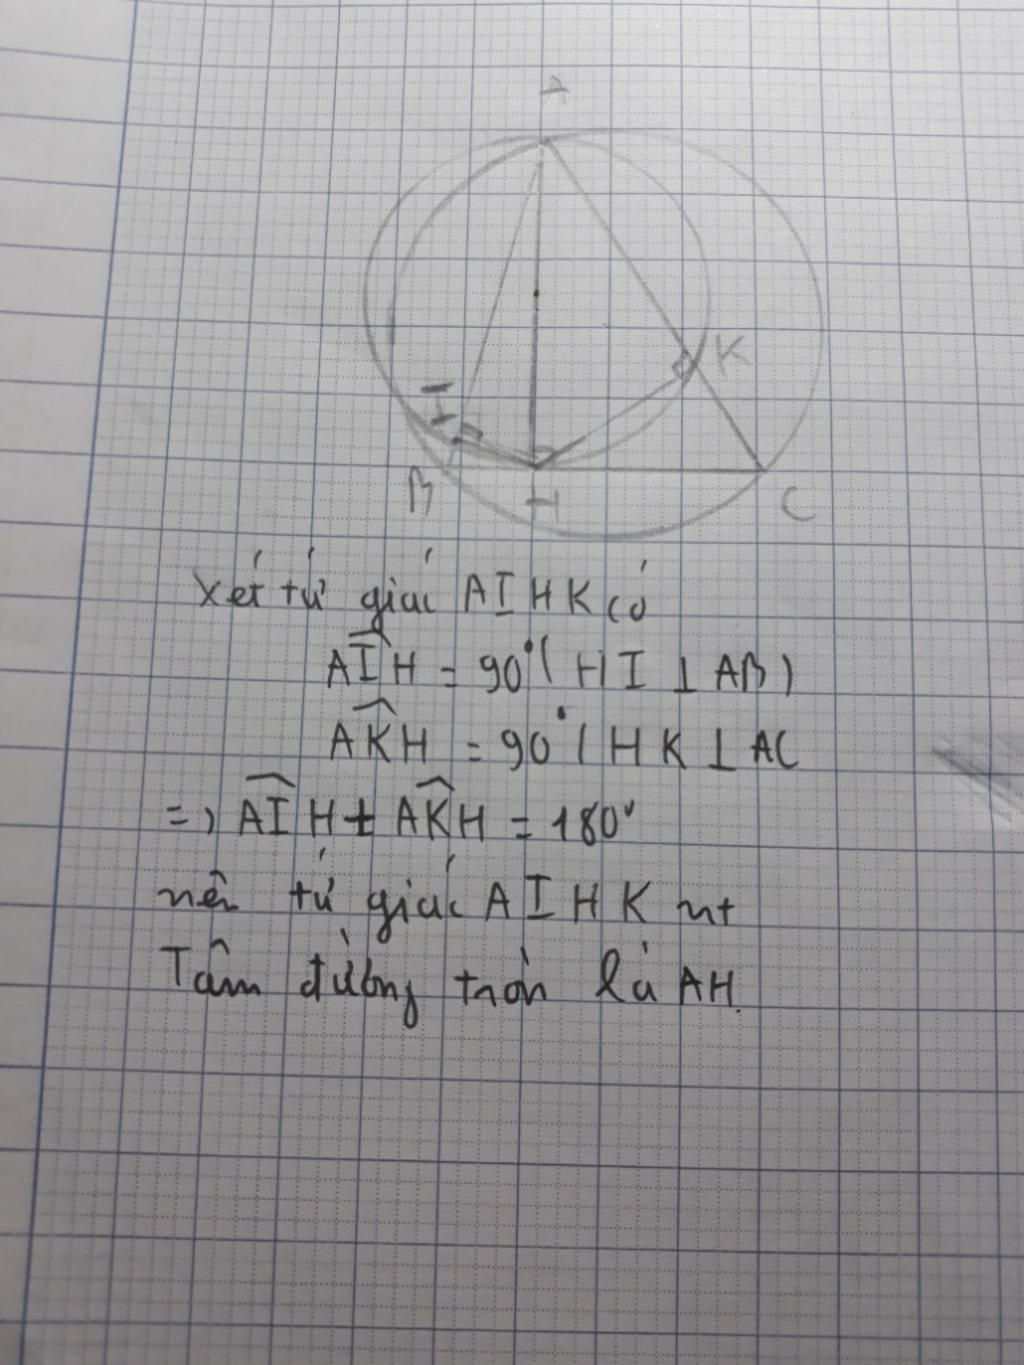 A
K
I
B
H
C
Xét tứ giác AIHK có
AIH = 90° ( HI ⊥ AB )
AKH = 90° ( HK ⊥ AC
=) AIH + AKH = 180°
nên tứ giác AIHK nt
Tâm đường tròn là AH.